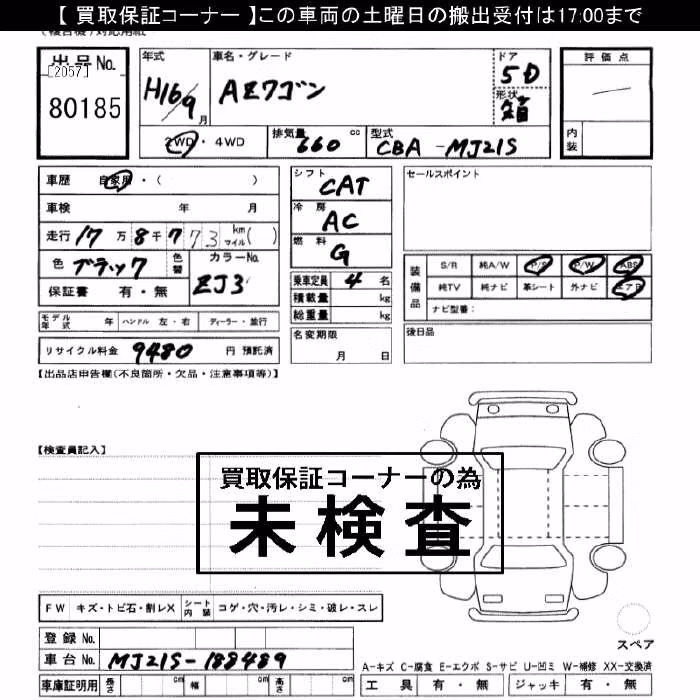 【 買取保証コーナー 】この車両の土曜日の搬出受付は17:00まで
出品No.
[2057]
80185
年式
H16/9月
車名・グレード
AZワゴン
ドア
5D
形状
箱
評価点
内装
2WD・4WD
排気量 660 cc
型式 CBA-MJ21S
車歴 自家用・( )
車検 年 月
走行 17万8千773 km マイル( )
色 ブラック 色替
カラーNo. ZJ3
保証書 有・無
モデル年式 年 ハンドル 左・右 ディーラー・並行
リサイクル料金 9480 円 預託済
シフト CAT
冷房 AC
燃料 G
乗車定員 4 名
積載量 kg
総重量 kg
名変期限
月 日
セールスポイント
装備品
S/R 純A/W P/S P/W ABS
純TV 純ナビ 革シート 外ナビ エアB
ナビ型番:
後日品
【出品店申告欄(不良箇所・欠品・注意事項等)】
【検査員記入】
買取保証コーナーの為
未検査
FW キズ・トビ石・割レX シート内装 コゲ・穴・汚レ・シミ・破レ・スレ
登録 No.
車台 No. MJ21S-188489
車庫証明用 長さ cm 幅 cm 高さ cm
スペア
A-キズ C-腐食 E-エクボ S-サビ U-凹ミ W-補修 XX-交換済
工具 有・無 ジャッキ 有・無